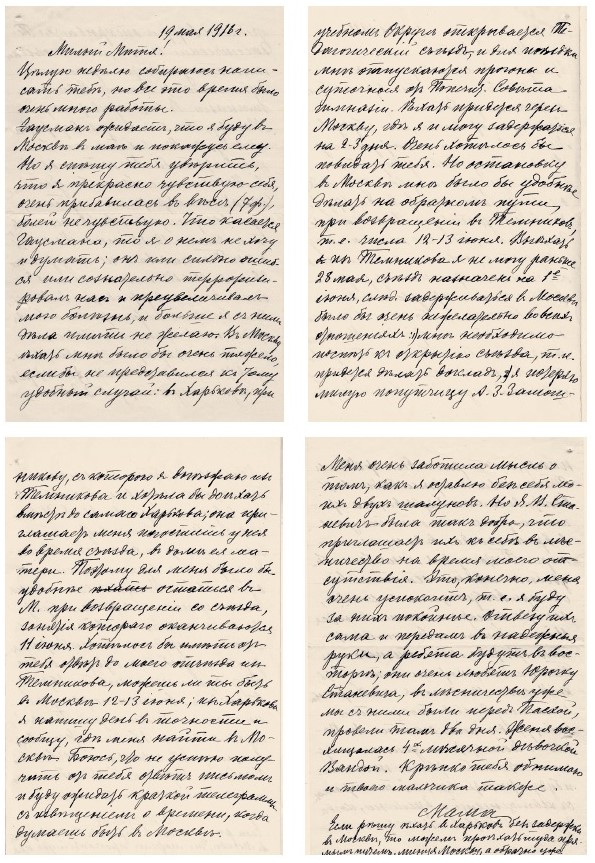 19 мая 1916 г.
Милый Митя!
Цѣлую недѣлю собираюсь напи-
сать тебѣ, но все это время было
очень много работы.
Гаусманъ ожидаетъ, что я буду въ
Москвѣ въ маѣ и покажусь ему.
Но я спѣшу тебя увѣрить,
что я прекрасно чувствую себя,
очень прибавилась въ вѣсѣ (7 ф.),
болей не чувствую. Что касается
Гаусмана, то я о немъ не хочу
и думать; онъ или сильно ошиб-
ся или сознательно терроризи-
ровалъ насъ и преувеличивалъ
мою болѣзнь, и больше я съ нимъ
дѣла имѣть не желаю. Въ Москву
ѣхать мнѣ было бы очень тяжело,
если бы не представился къ тому
удобный случай: въ Харьковѣ, при
учебномъ Округѣ открывается Пе-
дагогическій съѣздъ, и для поѣздки
мнѣ отпускаются прогоны и
суточныя отъ Попечит. Совѣта
гимназіи. Ѣхать придется черезъ
Москву, гдѣ я и могу задержаться
на 2-3 дня. Очень хотѣлось бы
повидать тебя. Но остановку
въ Москвѣ мнѣ было бы удобнѣе
дѣлать на обратномъ пути,
при возвращеніи въ Темниковъ,
т.е. числа 12-13 іюня. Выѣхать
изъ Темникова я не могу раньше
28 мая, съѣздъ назначенъ на 1ое
іюня, слѣд. задерживаться въ Москвѣ
было бы очень нежелательно во всѣхъ
отношеніяхъ: мнѣ необходимо
поспѣть къ открытію съѣзда, т.к.
придется дѣлать докладъ, я потеряю
милую попутчицу А. З.
никову, съ которою я выѣзжаю изъ
Темникова и хотѣла бы доѣхать
вмѣстѣ до самаго Харькова; она при-
глашаетъ меня погостить у нея
во время съѣзда, въ домѣ ея ма-
тери. Поэтому для меня было бы
удобнѣе остаться въ
М. при возвращеніи со съѣзда,
занятія котораго оканчиваются
11 іюня. Хотѣлось бы имѣть отъ
тебя отвѣтъ до моего отъѣзда изъ
Темникова, можешь ли ты быть
въ Москвѣ 12-13 іюня; изъ Харькова
я напишу день въ точности и
сообщу, гдѣ меня найти въ Мо-
сквѣ. Боюсь, что не успѣю полу-
чить отъ тебя отвѣтъ письмомъ
и буду ожидать краткой телеграммы
съ извѣщеніемъ о времени, когда
думаешь быть въ Москвѣ.
Меня очень заботила мысль о
томъ, какъ я оставлю безъ себя мо-
ихъ двухъ шалуновъ. Но Я. В. Ста-
невичъ была такъ добра, что
приглашаетъ ихъ къ себѣ въ лѣс-
ничество на время моего от-
сутствія. Это, конечно, меня
очень успокоитъ, т. е. я буду
за нихъ покойнѣе. Отвезу ихъ
сама и передамъ въ надежныя
руки, а ребята будутъ въ вос-
торгѣ; они очень любятъ Юрочку
Станевича, въ лѣсничествѣ уже
мы съ ними были передъ Пасхой,
провели тамъ два дня. Женя вос-
хищалась 4х мѣсячной дѣвочкой
Вандой. Крѣпко тебя обнимаю
и твоего мальчика также.
Мама.
Если рѣшу ѣхать въ Харьковъ безъ задержки
въ Москвѣ, то можетъ проѣхать туда пря-
мымъ путемъ, минуя Москву, а обратно уже